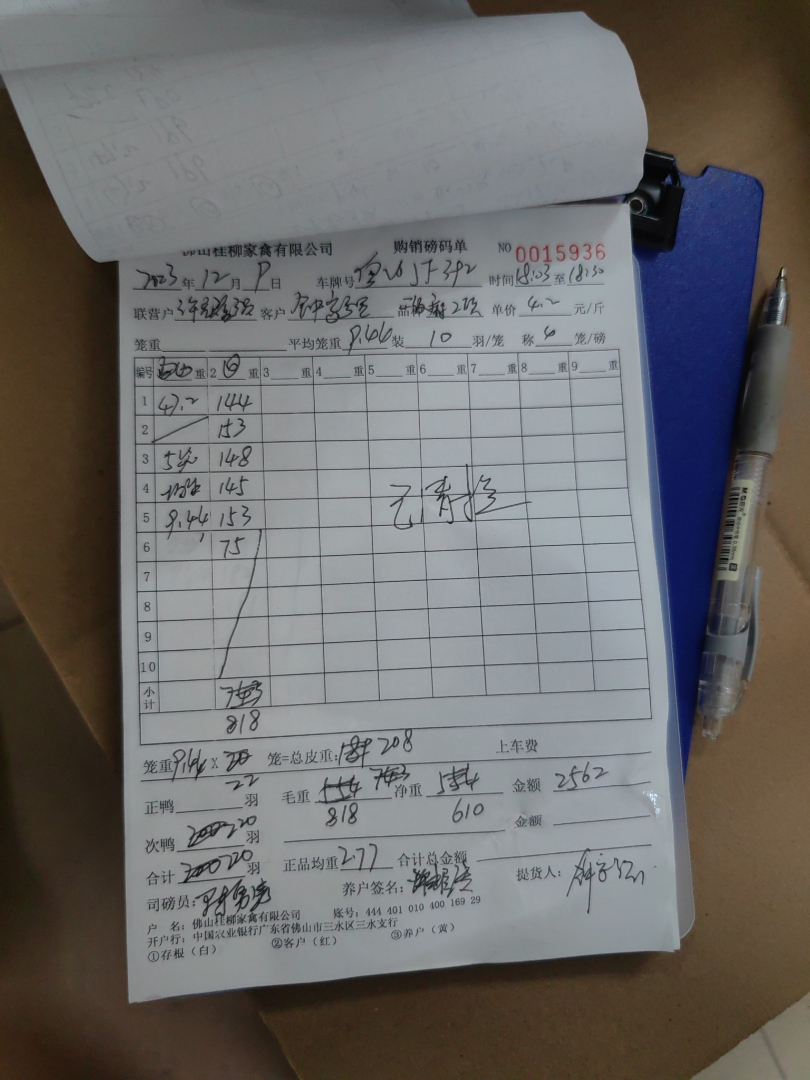 佛山桂柳家禽有限公司 购销磅码单 NO 0015936
2023年12月9日 车牌号 时间18:03至18:30
联营户 客户 品种 2级 单价4.2元/斤
笼重 平均笼重9.44装10羽/笼 称4笼/磅
编号 重 2 回 重 3 重 4 重 5 重 6 重 7 重 8 重 9 重
1 47.2 144
2 153
3 5笼 148
4 均重 145
5 9.44 153
6 75
7
8
9
10
小计
818
笼重9.44X 笼=总皮重: 208 上车费
22
正鸭 羽 毛重 净重 金额2562
818 610
次鸭 220羽 金额
合计 220羽 正品均重2.77 合计总金额
已清检
司磅员: 养户签名: 提货人:
户 名: 佛山桂柳家禽有限公司 账号: 444 401 010 400 169 29
开户行: 中国农业银行广东省佛山市三水区三水支行
①存根(白) ②客户(红) ③养户(黄)